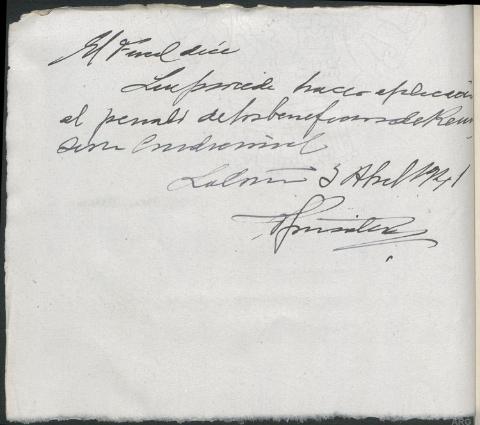 El Fiscal dice
Que procede hacer aplicación
al penado de los beneficios de Remi
sion Condicional
3 Abril 1941
ARG